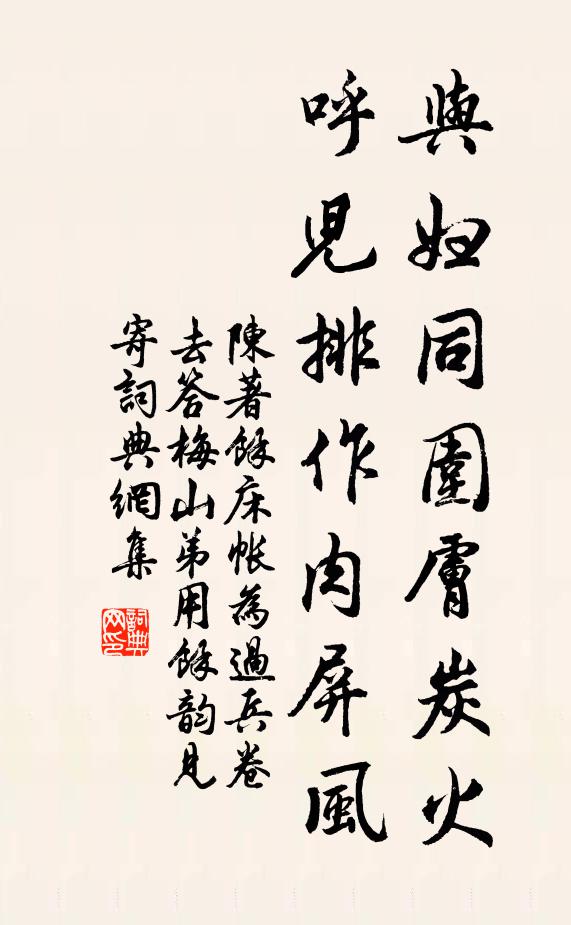 與婦同圍膚炭火
呼兒排作肉屏風
陳著餘床帳為過兵卷
去答梅山弟用餘韵見
寄詞典網集
詞典
网印